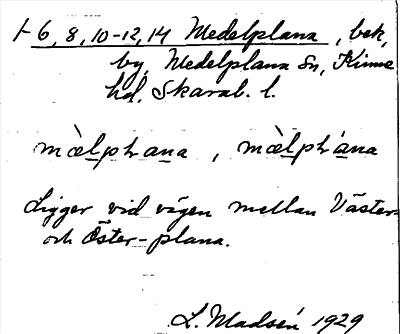 1-6, 8, 10-12, 14 Medelplana, bek,
by, Medelplana Sn, Kinne
hd. Skarab. l.
mæ̀lplana, mæ̀lplána
Ligger vid vägen mellan Väster-
och Öster-plana.
L. Madsén 1929